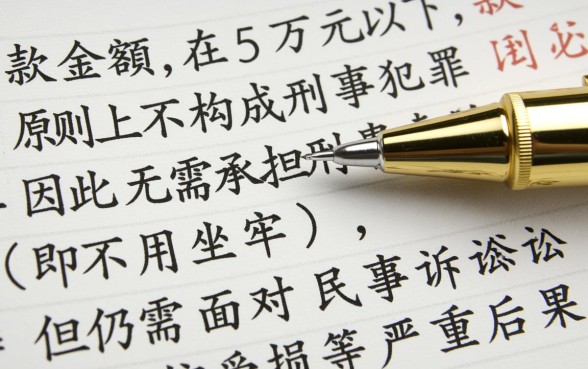 款金額,在5万元以下,款
原则上不构成刑事犯罪 必
因此无需承担刑事
(即不用坐牢),
但仍需面对民事诉讼
受损等严重后果